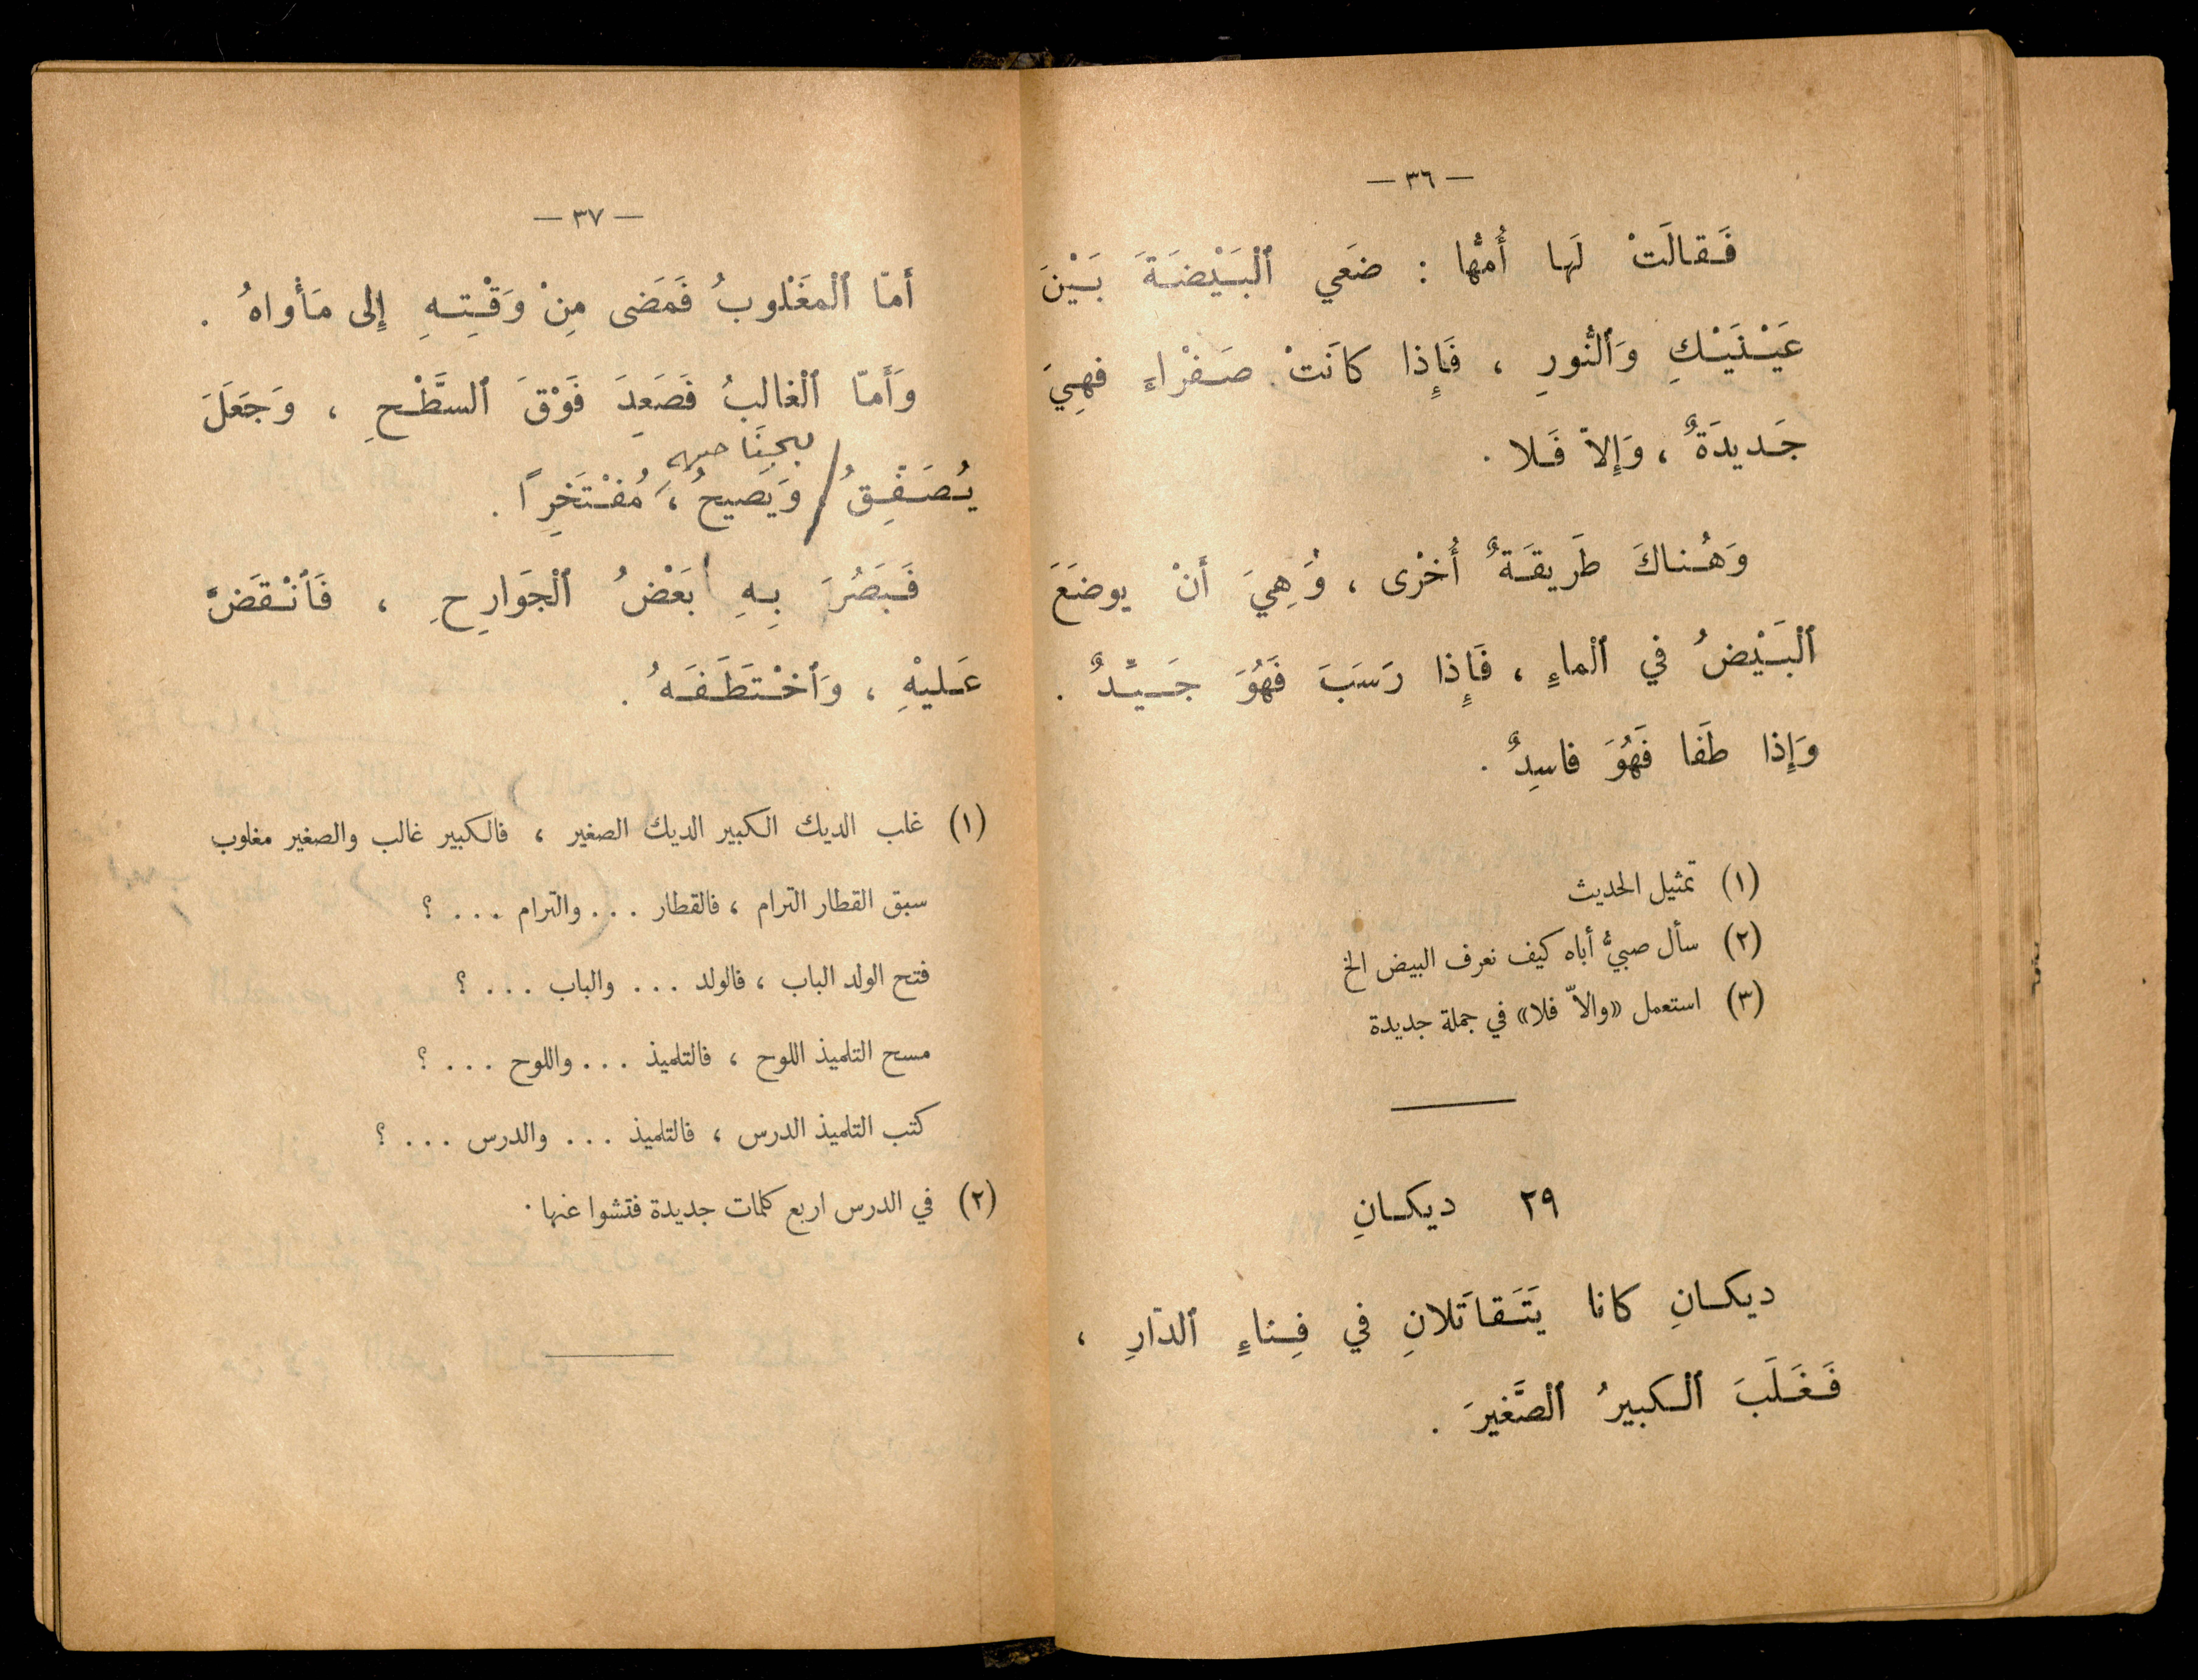 — ٣٦ —
فَقالَتْ لَها أُمُّها : ضَعي ٱلْبَيْضَةَ بَيْنَ
عَيْنَيْكِ وَٱلنُّورِ ، فَإِذا كانَتْ صَفْراءَ فهِيَ
جَديدَةٌ ، وَإِلاّ فَلا .
وَهُناكَ طَريقَةٌ أُخْرى ، وَهِيَ أَنْ يوضَعَ
ٱلْبَيْضُ في ٱلْماءِ ، فَإِذا رَسَبَ فَهُوَ جَيِّدٌ .
وَإِذا طَفا فَهُوَ فاسِدٌ .
(١) تمثيل الحديث
(٢) سأل صبيٌّ أباه كيف نعرف البيض الخ
(٣) استعمل «والاّ فلا» في جملة جديدة
٢٩ ديكانِ
ديكانِ كانا يَتَقاتَلانِ في فِناءِ ٱلدّارِ ،
فَغَلَبَ ٱلْكبيرُ ٱلصَّغيرَ .
— ٣٧ —
أَمّا ٱلْمغَلْوبُ فَمَضى مِنْ وَقْتِهِ إِلى مَأْواهُ .
وَأَمّا ٱلْغالبُ فَصَعِدَ فَوْقَ ٱلسَّطْحِ ، وَجَعَلَ
بجنَاحيه
يُصَفِّقُ / وَيَصيحُ ، مُفْتَخِراً .
فَبَصُرَ بِهِ بَعْضُ ٱلْجَوارِحِ ، فَٱنْقَضَّ
عَليْهِ ، وَٱخْتَطَفَهُ .
(١) غلب الديك الكبير الديك الصغير ، فالكبير غالب والصغير مغلوب
سبق القطار الترام ، فالقطار . . . والترام . . . ؟
فتح الولد الباب ، فالولد . . . والباب . . . ؟
مسح التلميذ اللوح ، فالتلميذ . . . واللوح . . . ؟
كتب التلميذ الدرس ، فالتلميذ . . . والدرس . . . ؟
(٢) في الدرس اربع كلمات جديدة فتشوا عنها .